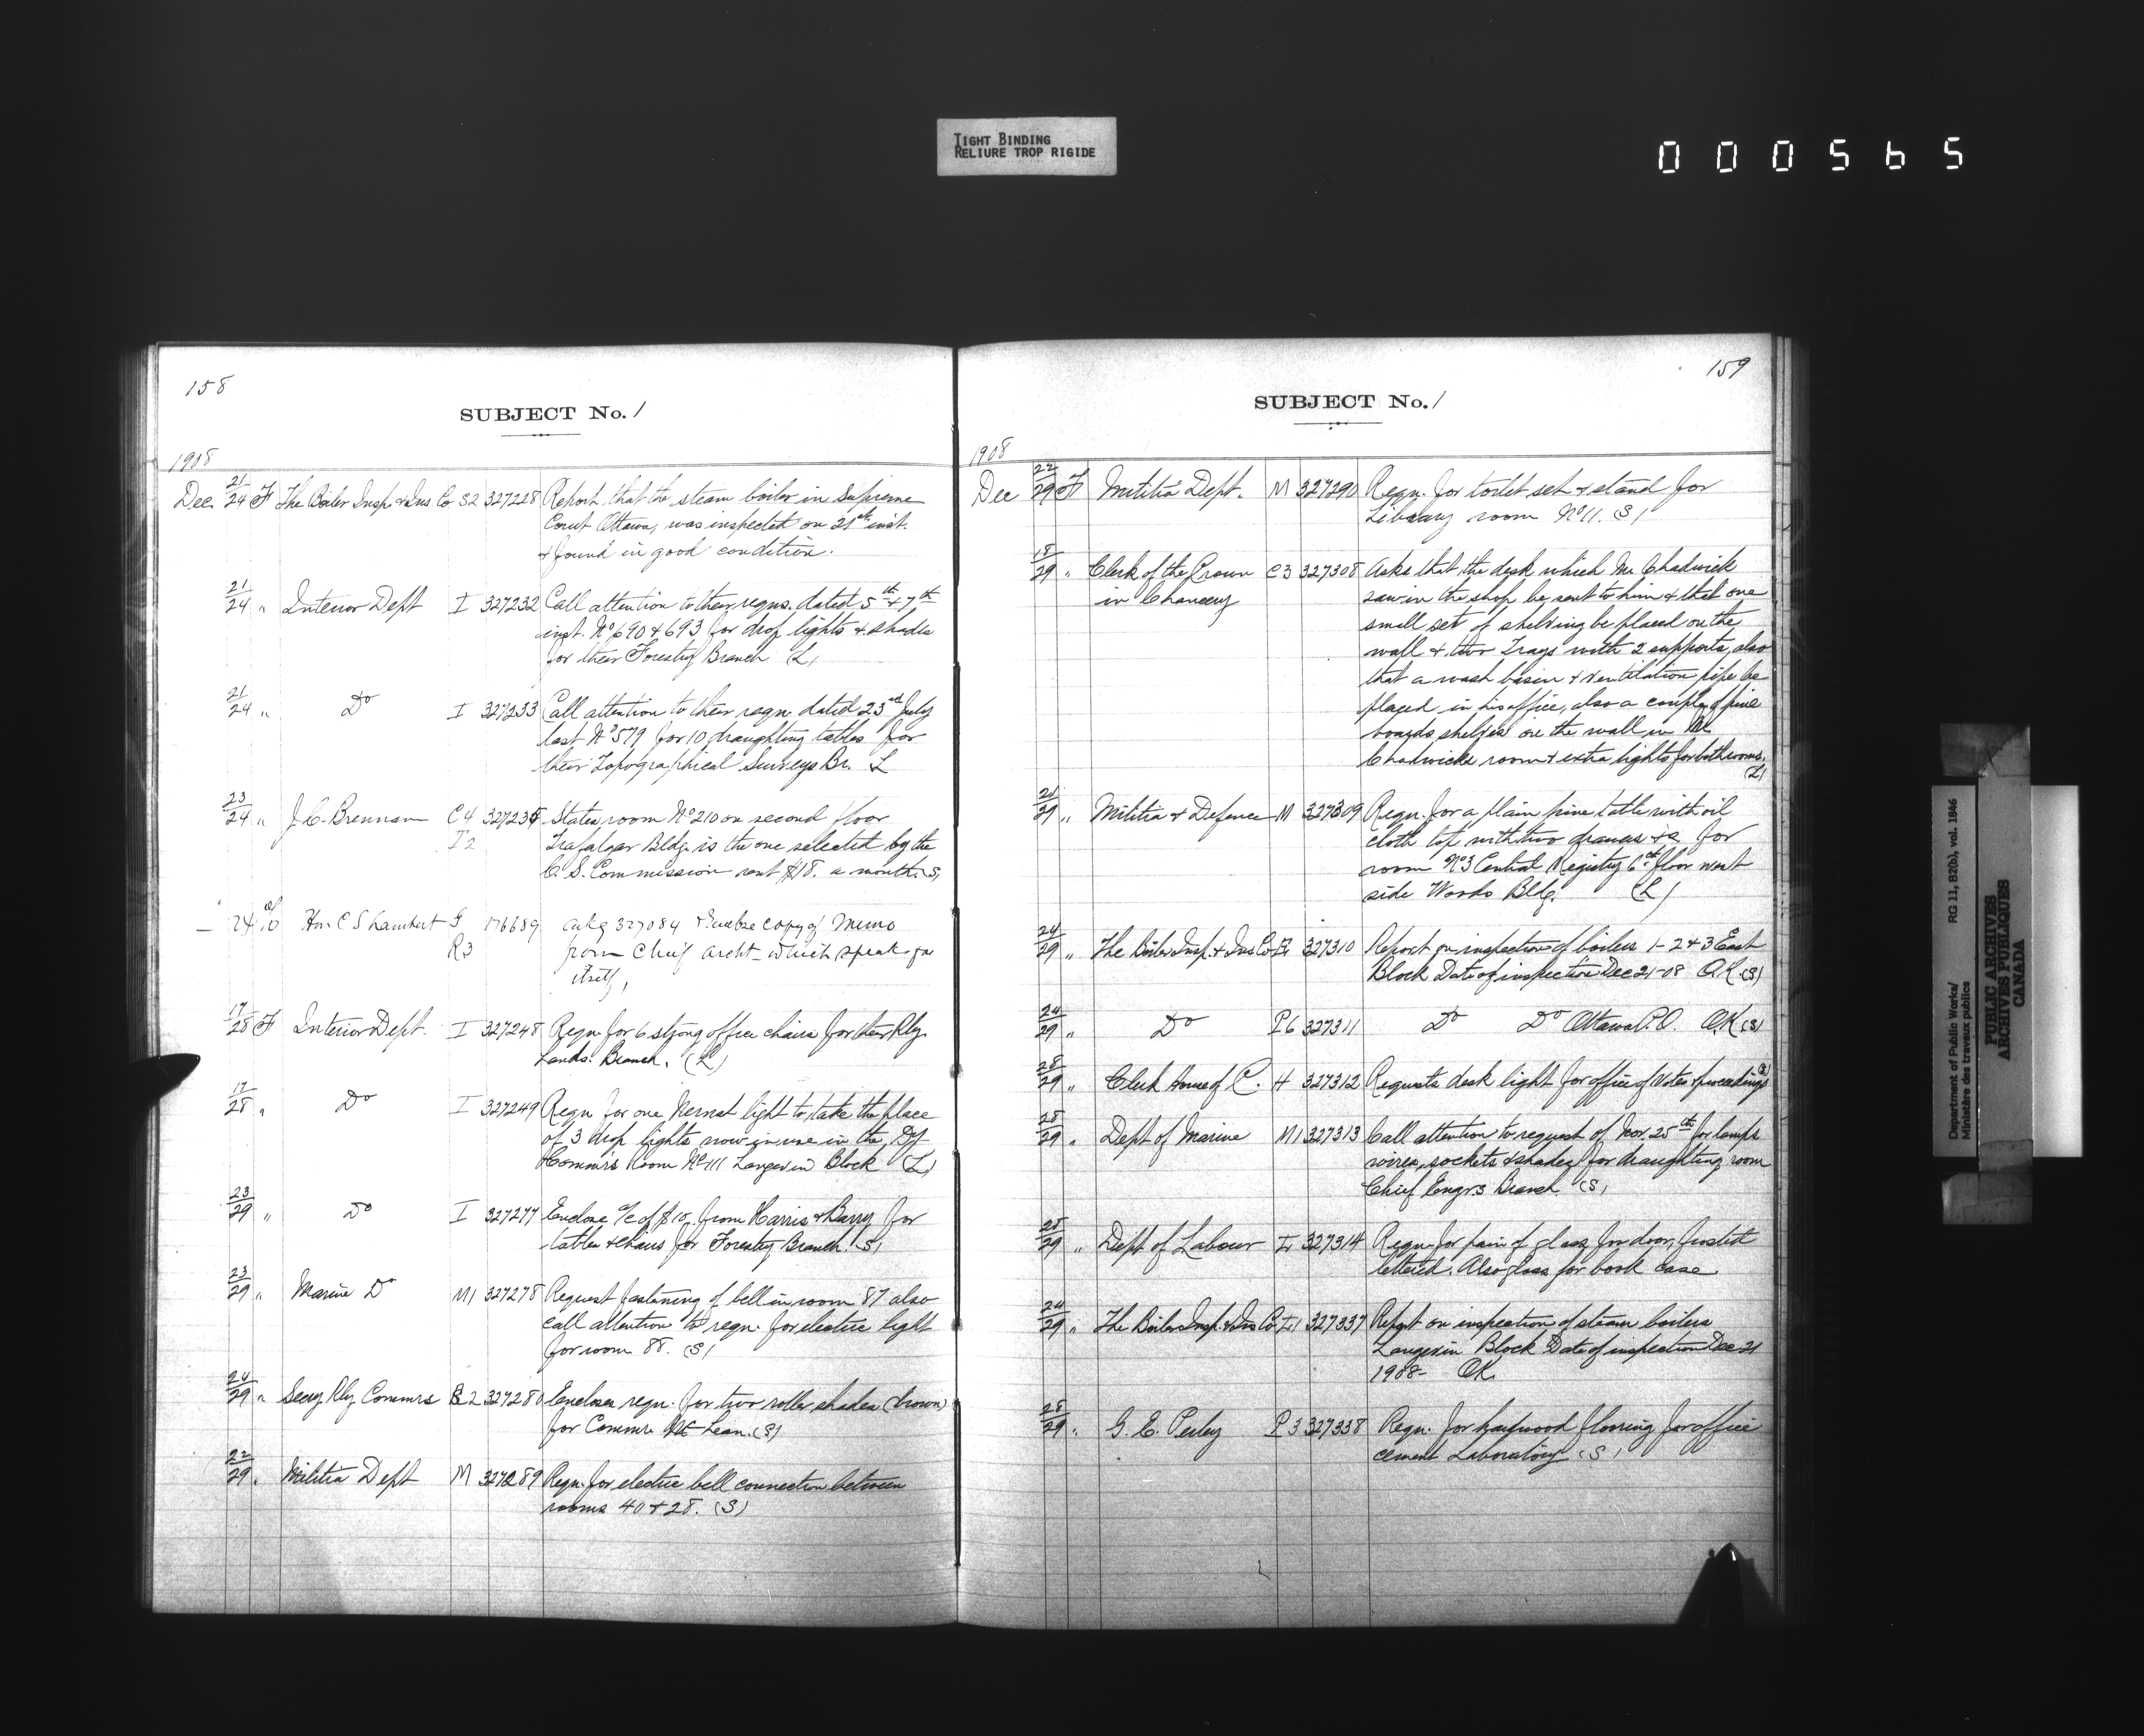 TIGHT BINDING
RELIURE TROP RIGIDE
000565
158
SUBJECT No. 1
1908
Dec. 21/24 F The Boiler Insp. & Ins. Co S2 327228 Report that the steam boiler in Supreme
Court Ottawa, was inspected on 21st inst.
& found in good condition.
21/24 " Interior Dept I 327232 Call attention to their reqns. dated 5th & 7th
inst. No 690 & 693, for drop lights & shades
for their Forestry Branch (L)
21/24 " Do I 327233 Call attention to their reqn. dated 23rd July
last No 579 for 10 draughting tables for
their Topographical Surveys Br. L
23/24 " J. C. Brennan C4 States room No 210 on second floor
T2 Trafalgar Bldg. is the one selected by the
C. S. Commission rent $18. a month. (S)
24 Hon C S Lambert G 176689 ackg 327084 copy of Memo
R3 from Chief Archt - which speaks for
itself,
17/28 F Interior Dept. I 327248 Reqn. for 6 strong office chairs for their Rly.
Lands. Branch. (L)
17/28 " Do I 327249 Reqn for one Nernst light to take the place
of 3 drop lights now in use in the Dy
Commrs Room No 111 Langevin Block (L)
23/29 " Do I 327277 Enclose a/c of $10. from Harris & Barry for
tables & chairs for Forestry Branch. (S)
23/29 " Marine Do M1 327278 Request fastening of bell in room 87 also
call attention to reqn. for electric light
for room 88. (S)
24/29 " Secy Rly Commrs R2 327280 Encloses reqn. for two roller shades (brown)
for Commr. McLean. (S)
22/29 " Militia Dept M 327289 Reqn. for electric bell connection between
rooms 40 & 28. (S)
159
SUBJECT No. 1
1908
Dec 22/29 F Militia Dept. M 327290 Reqn. for toilet set & stand for
Library room No 11. (S)
18/29 " Clerk of the Crown C3 327308 Asks that the desk which Mr Chadwick
in Chancery saw in the shop be sent to him & that one
small set of shelving be placed on the
wall & two Trays with 2 supports, also
that a wash basin & ventilation pipe be
placed in his office, also a couple of pine
boards shelves on the wall in Mr
Chadwicks room & extra lights for both rooms.
(L)
21/29 " Militia & Defence M 327309 Reqn. for a plain pine table with oil
cloth top with two drawers for
room No 3 Central Registry 6th floor west
side Woods Bldg. (L)
24/29 " The Boiler Insp. & Ins Co E1 327310 Report on inspection of boilers 1-2 & 3 East
Block Date of inspection Dec 21-08 O.K. (S)
24/29 " Do P6 327311 Do Do Ottawa P.O. OK (S)
28/29 " Clerk House of C. H 327312 Requests desk light for office of Votes & proceedings
28/29 " Dept of Marine M1 327313 Call attention to request of Nov. 25th for lamps
wires, sockets & shades for draughting room
Chief Engrs Branch. (S)
28/29 " Dept of Labour 327314 Reqn. for pain of glass for door, frosted
lettered. Also glass for book case
24/29 " The Boiler Insp. & Ins Co L1 327337 Report on inspection of steam boilers
Langevin Block Date of inspection Dec 21
1908- OK.
28/29 " G. E. Perley P3 327338 Reqn. for hardwood flooring for office
cement Laboratory (S)
Department of Public Works/ RG 11, B2(b), vol. 1846
Ministère des travaux publics
PUBLIC ARCHIVES
ARCHIVES PUBLIQUES
CANADA